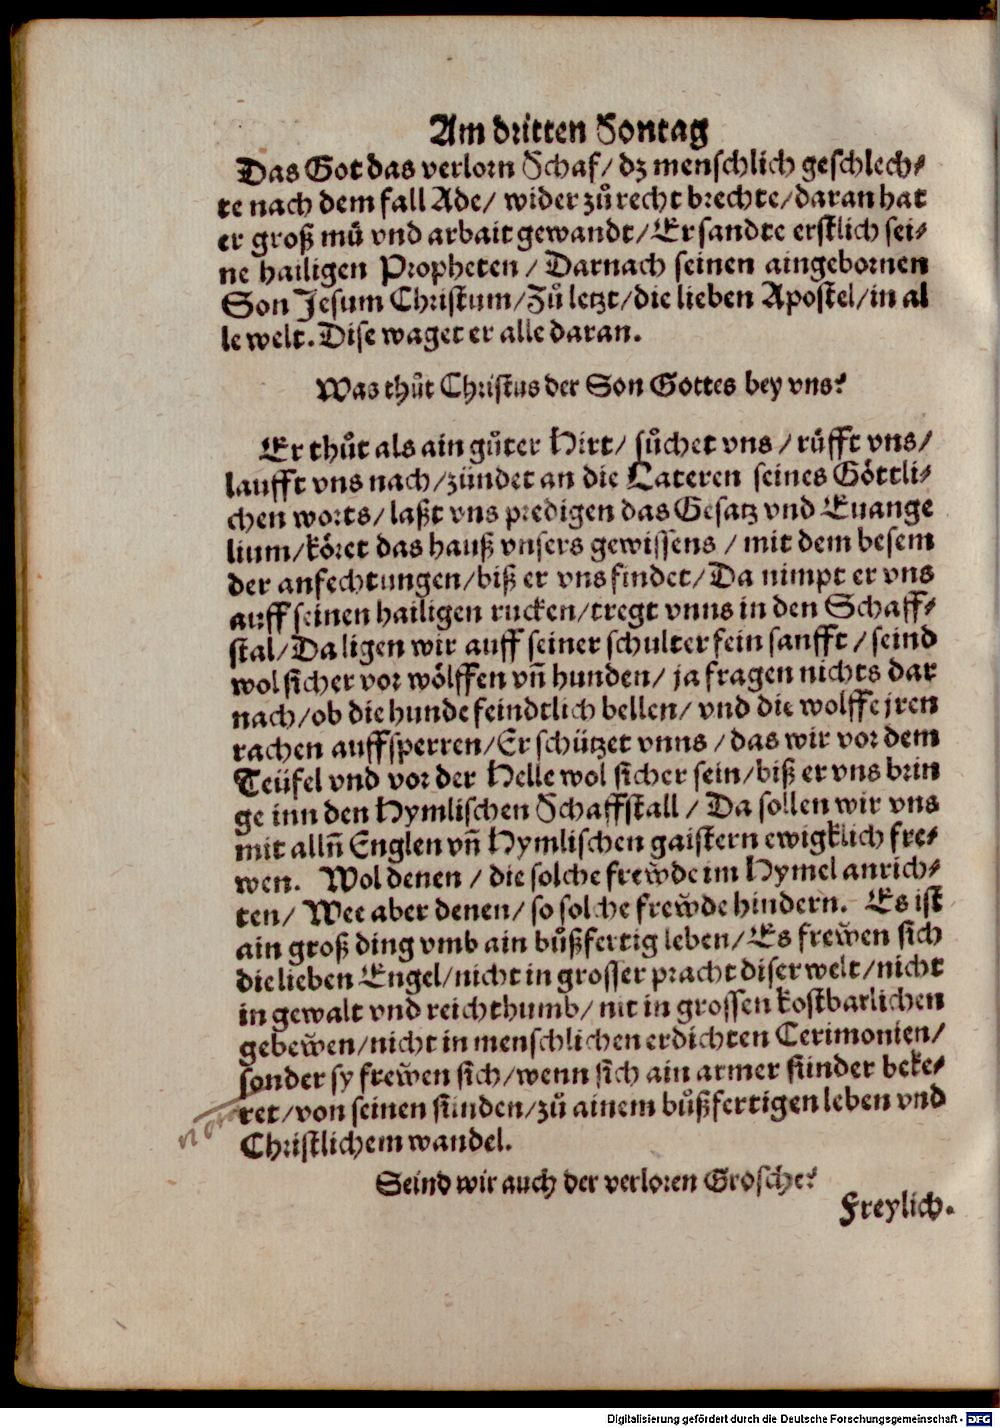 Am dritten Sontag
Das Got das verlorn Schaf/ dz menschlich geschlech⸗
te nach dem fall Ade/ wider zů recht brechte/ daran hat
er groß mü vnd arbait gewandt/ Er sandte erstlich sei⸗
ne hailigen Propheten / Darnach seinen aingebornen
Son Jesum Christum/ Zů letzt/ die lieben Apostel/ in al
le welt. Dise waget er alle daran.
Was thůt Christus der Son Gottes bey vns?
Er thůt als ain gůter Hirt/ sůchet vns / rüfft vns/
laufft vns nach/ zündet an die Lateren seines Göttli⸗
chen worts/ laßt vns predigen das Gesatz vnd Euange
lium/ köret das hauß vnsers gewissens / mit dem besem
der anfechtungen/ biß er vns findet/ Da nimpt er vns
auff seinen hailigen rucken/ tregt vnns in den Schaff⸗
stal/ Da ligen wir auff seiner schulter fein sanfft / seind
wol sicher vor wölffen vñ hunden/ ja fragen nichts dar
nach/ ob die hunde feindtlich bellen/ vnd die wolffe jren
rachen auffsperren/ Er schützet vnns / das wir vor dem
Teüfel vnd vor der Helle wol sicher sein/ biß er vns brin
ge inn den Hymlischen Schaffstall / Da sollen wir vns
mit allñ Englen vñ Hymlischen gaistern ewigklich fre⸗
wen. Wol denen / die solche frew̆de im Hymel anrich⸗
ten/ Wee aber denen/ so solche frew̆de hindern. Es ist
ain groß ding vmb ain bůßfertig leben/ Es frew̆en sich
die lieben Engel/ nicht in grosser pracht diser welt/ nicht
in gewalt vnd reichthumb/ nit in grossen kostbarlichen
gebew̆en/ nicht in menschlichen erdichten Cerimonien/
sonder sy frew̆en sich/ wenn sich ain armer sünder beke⸗
ret/ von seinen sünden/ zů ainem bůßfertigen leben vnd
Christlichem wandel.
Seind wir auch der verloren Grosche?
Freylich.
Digitalisierung gefördert durch die Deutsche Forschungsgemeinschaft - DFG